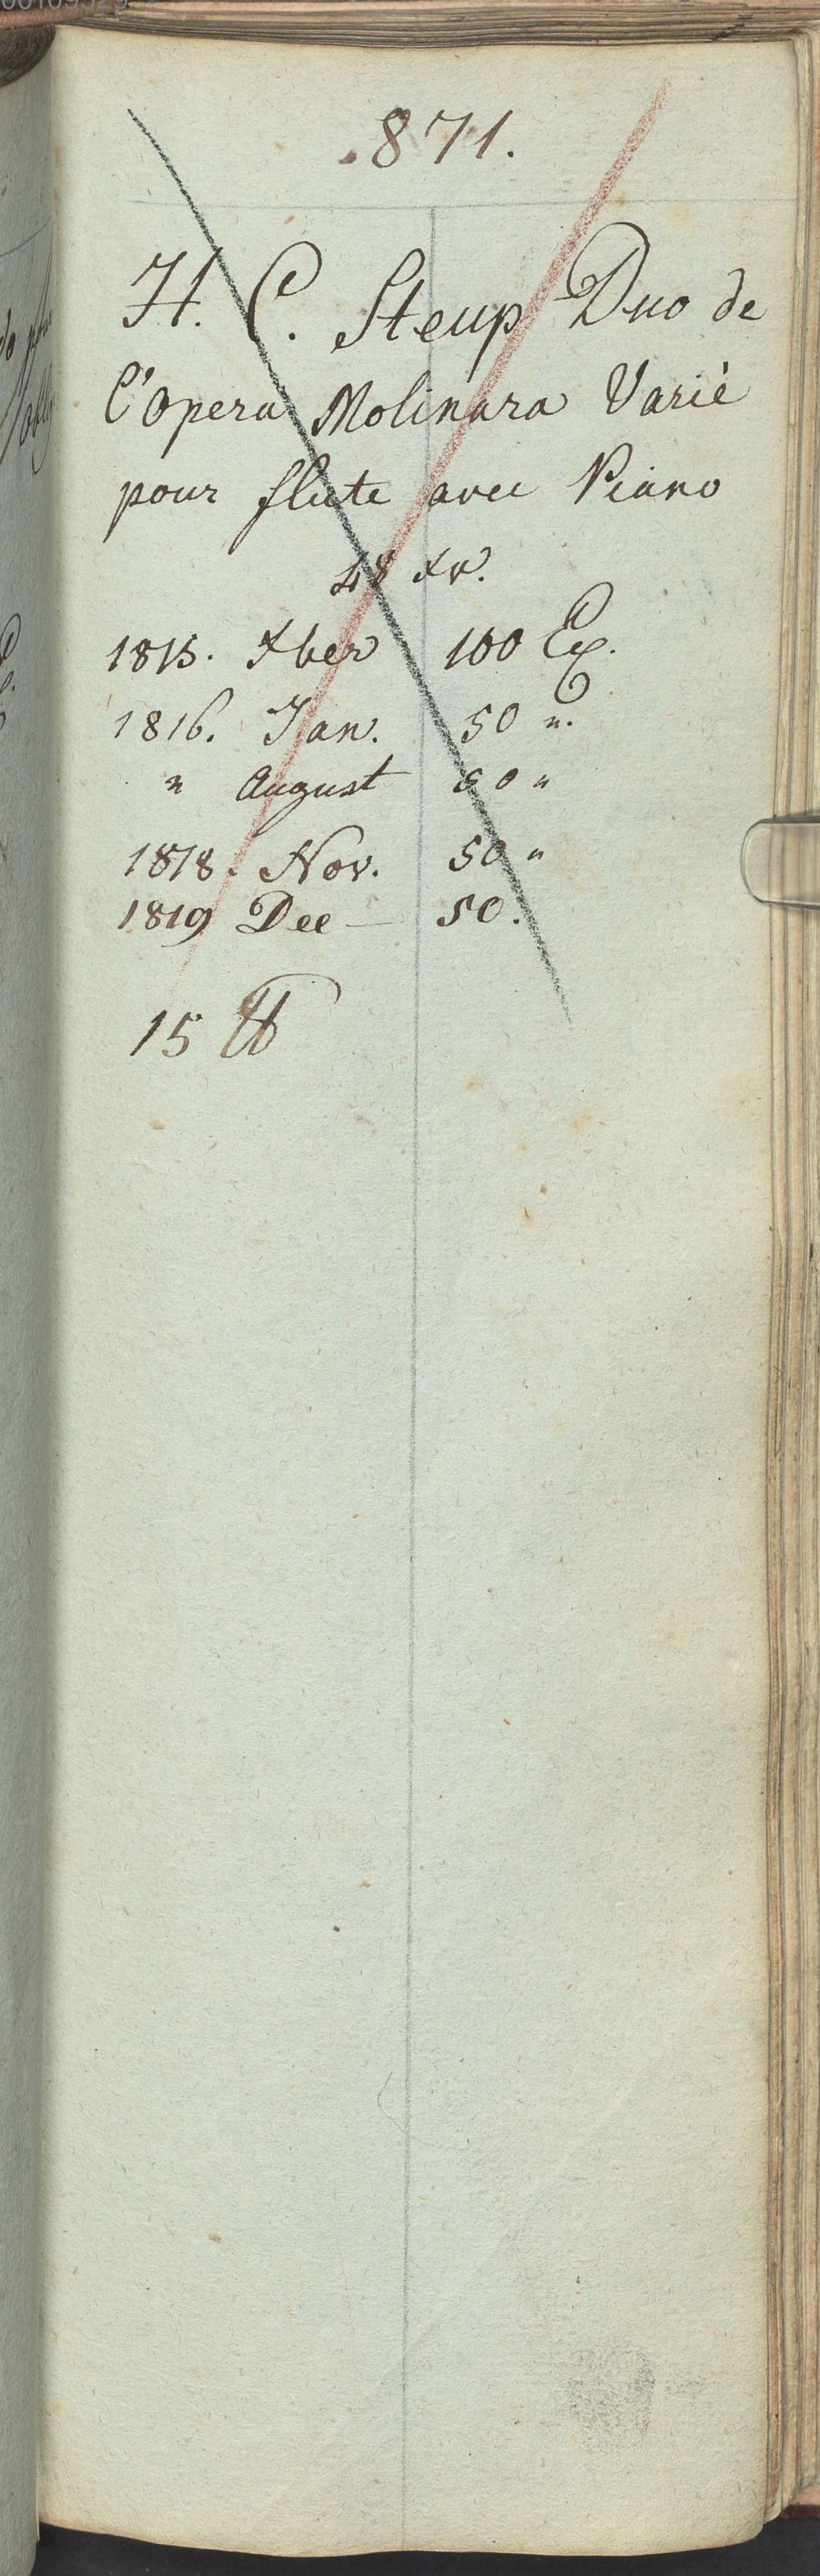 871.
H. C. Steup Duo de
l'opera Molinara Varié
pour flute avec Piano
48 xr.
1815. Xber 100 Ex.
1816. Jan. 50 "
" August 50 "
1818. Nov. 50 "
1819 Dec — 50.
15 ℔